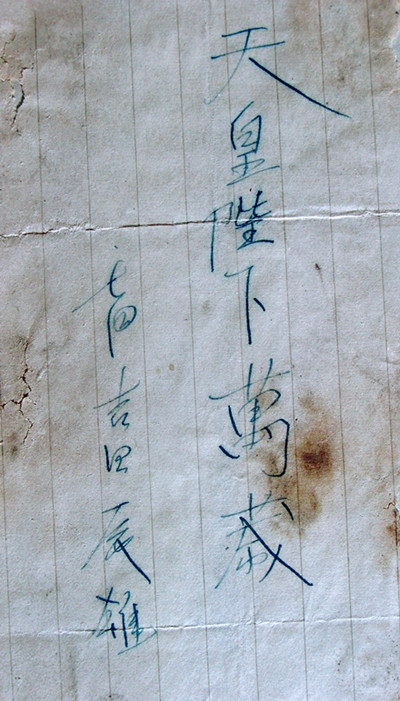 天皇陛下萬歳
吉田辰雄